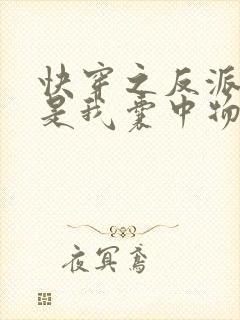 快穿之反派
是我囊中物
夜冥鸢